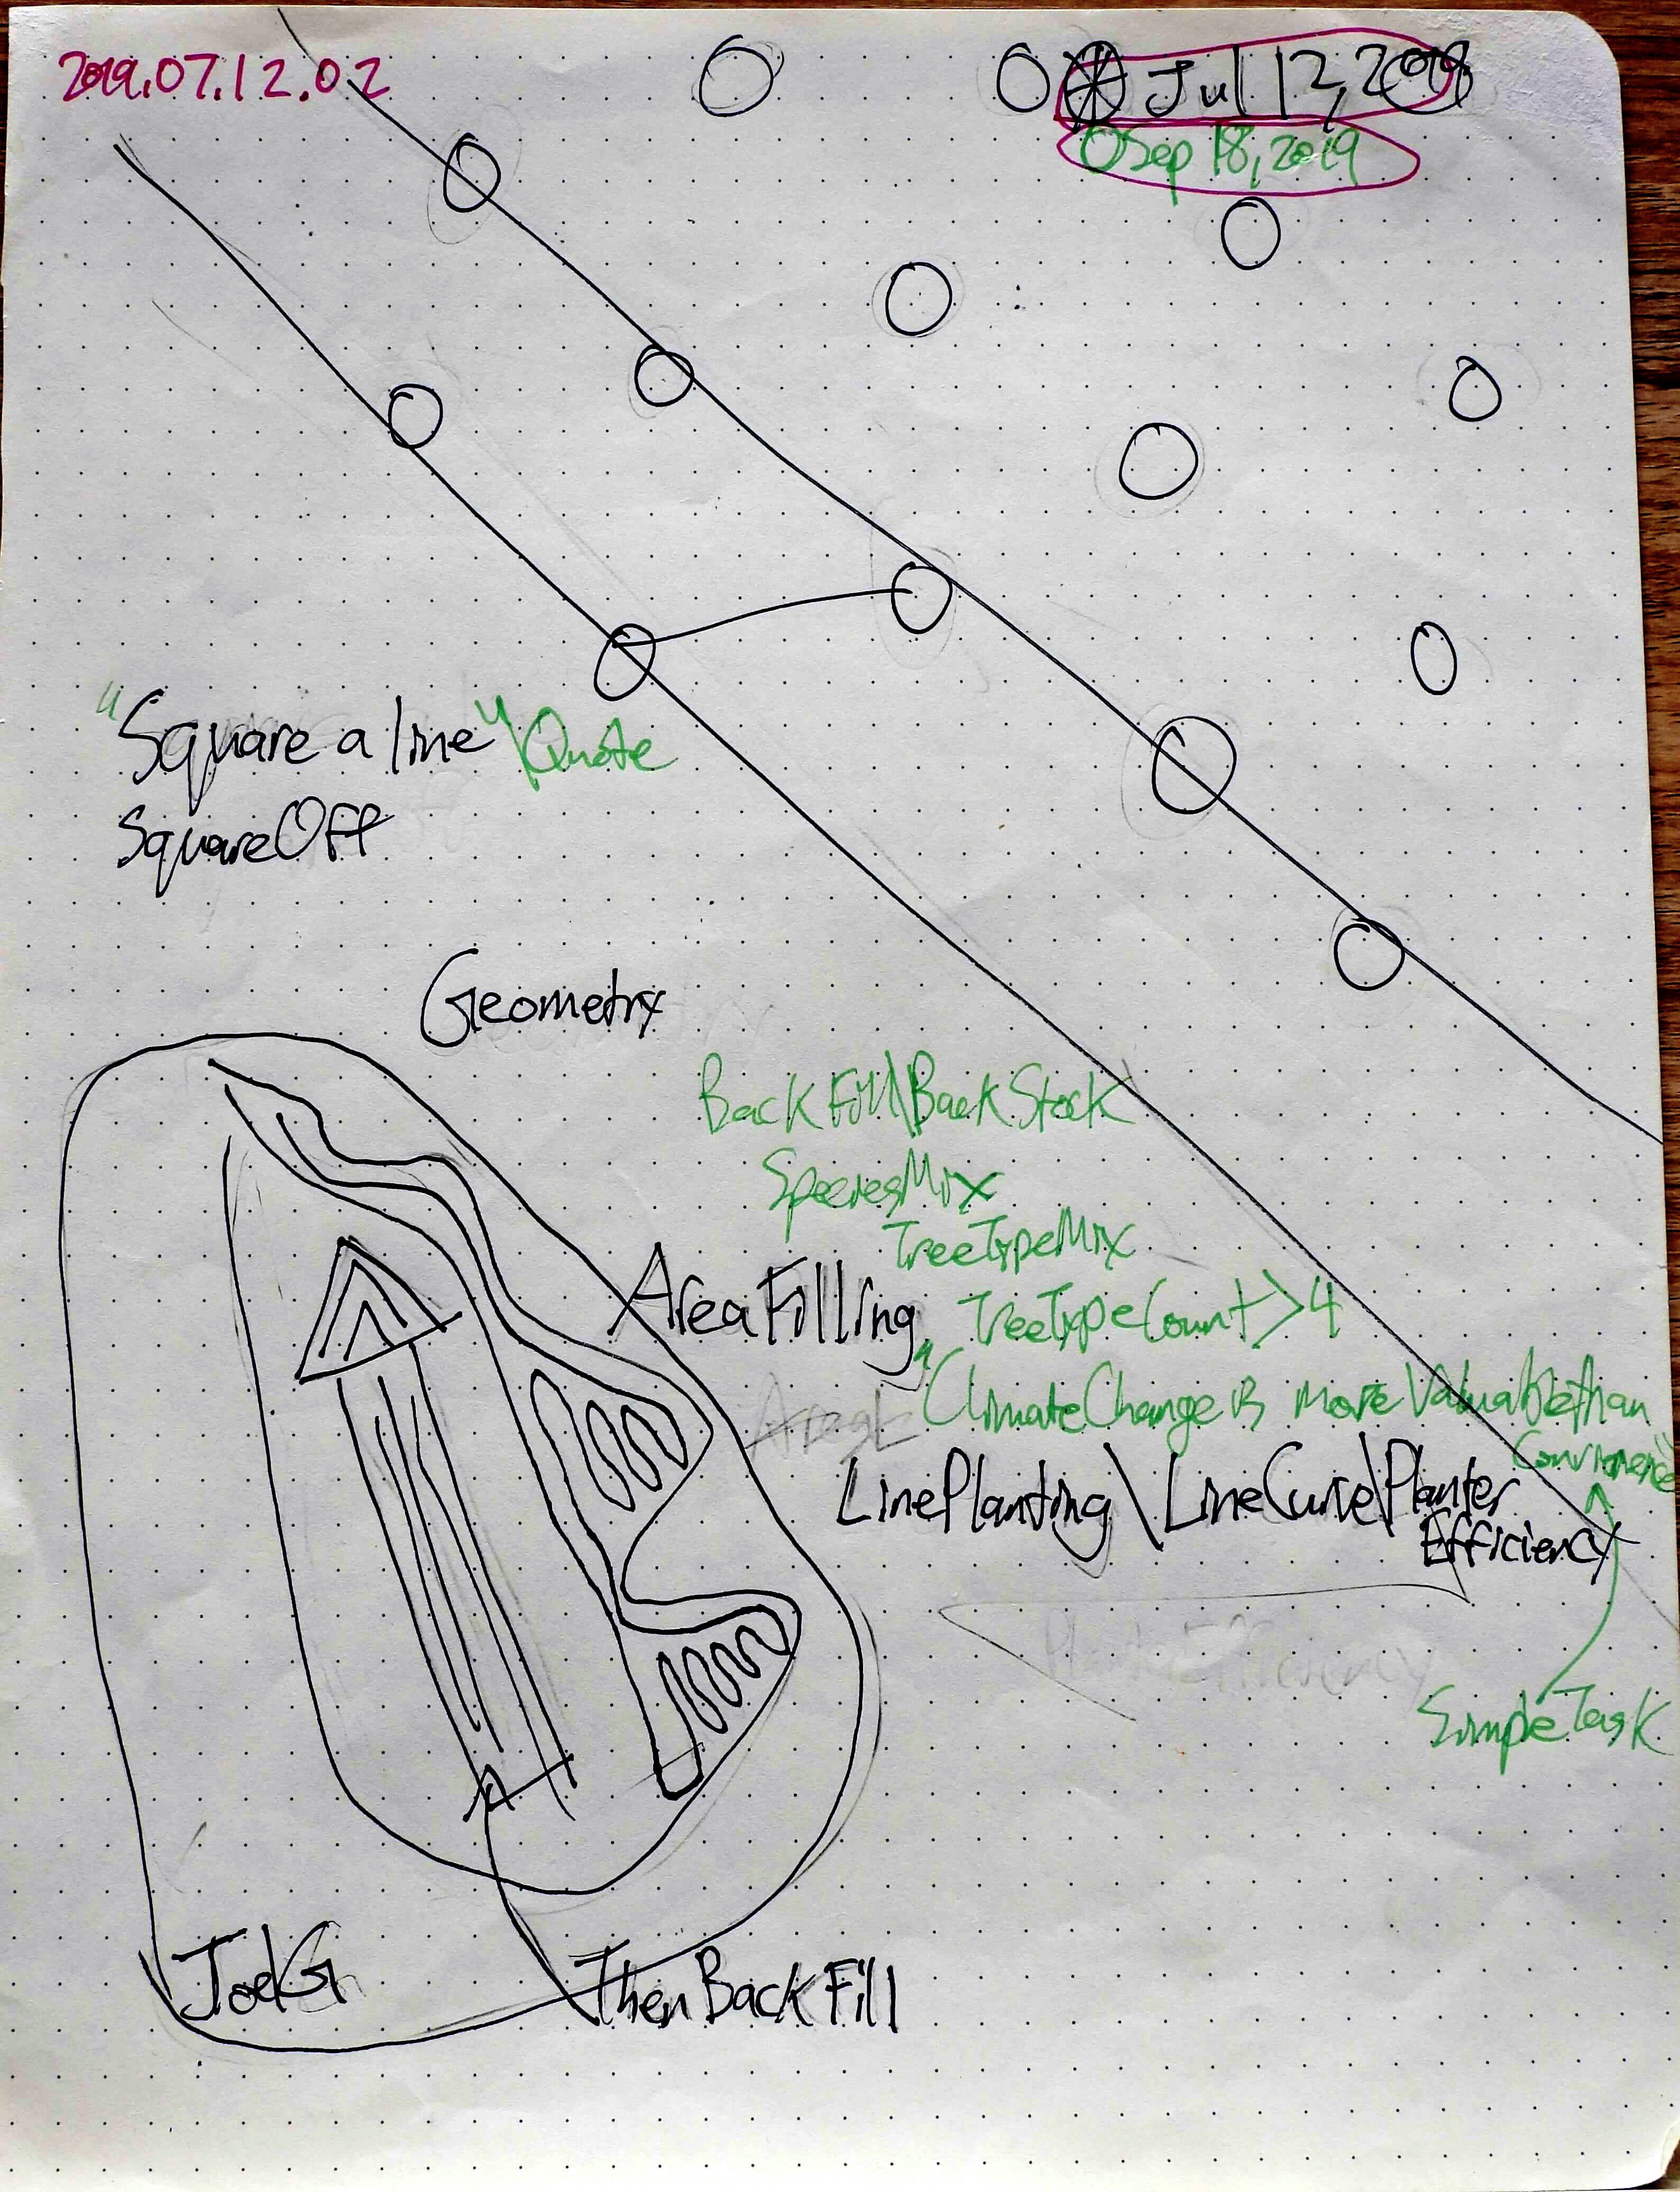 2019.07.12.02
Jul 12, 2019
Sep 18, 2019
"Square a line" \Quote
SquareOff
Geometry
BackFill\BackStock
SpeciesMix
TreeTypeMix
AreaFilling
TreeTypeCount > 4
"ClimateChange is more Valuable than
Convenience"
LinePlanting\LineCurve\Planter
Efficiency
SimpleTask
JoelG
ThenBackFill